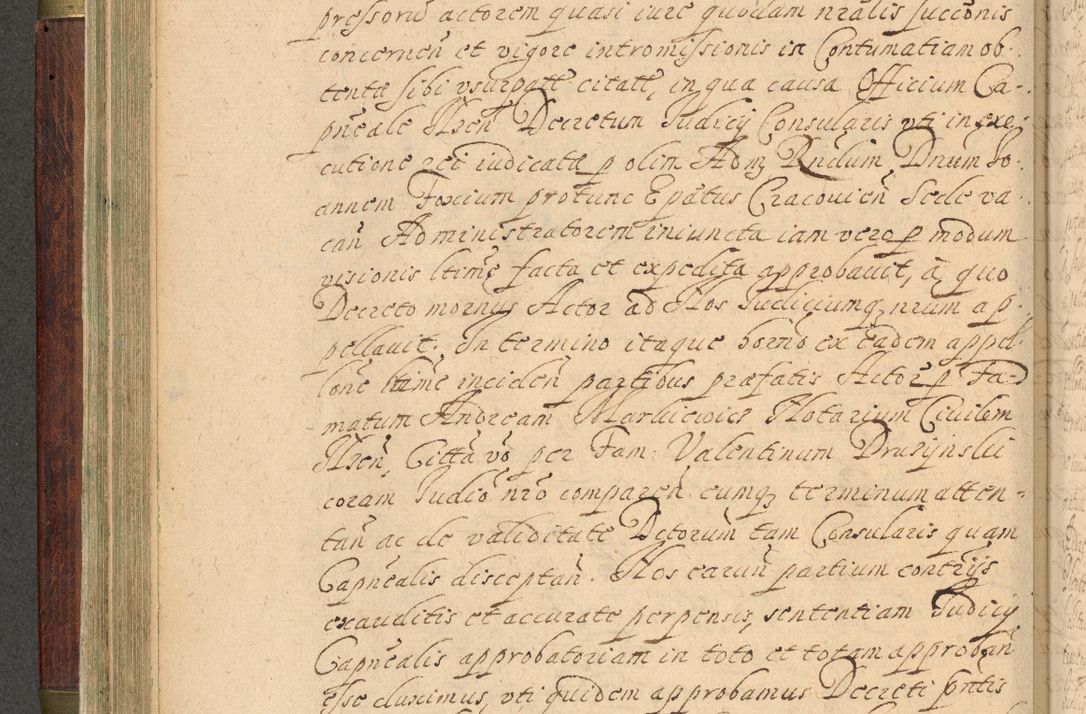 pressorũ actorem quasi iure quodam nralis succõnis
concernen̄ et vigore intromissionis in Contumatiam ob-
tentæ sibi vsurpatæ citatt, in qua causa Officium Ca-
pn̄eale Ilsen̄ Decretum Iudicij Consularis vti in exe-
cutione rei iudicatæ p olim Adm̃ Rndum Dnum Io-
annem Foxium protunc Epãtus Cracouien̄ Sede va-
can̄ Administratorem iniuncta iam vero p modum
visionis ltimè facta et expedita approbauit, à quo
Decreto mornus Actor ad Nos Iudiciumq nrum ap-
pellauit. In termino itaque horno ex eadem appel-
lõne ltimè inciden̄ partibus præfatis Actore p Fa-
matum Andream Markiewicz Notarium Ciuilem
Ilsen̄, Città vò per Fam. Valentinum Druzÿnski
coram Iudio nro comparen̄ eumq terminum atten-
tan̄ ac de validitate Detorum tam Consularis quam
Capnealis disceptan̄. Nos earun̄ partium contrijs
exauditis et accurate perpensis, sententiam Iudicij
Capnealis approbatoriam in toto et totam approban̄
esse duximus, vti quidem approbamus Decreti pntis